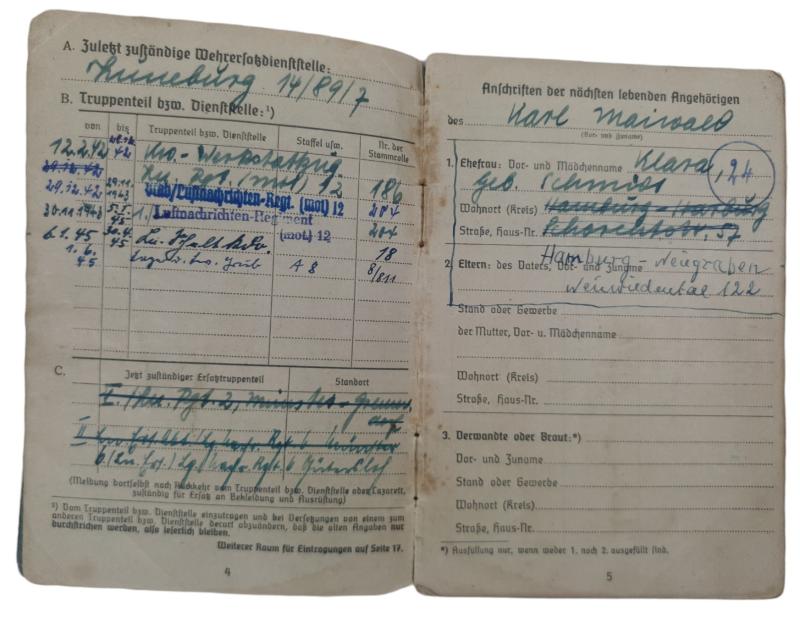 A. Zuletzt zuständige Wehrersatzdienststelle:
Lüneburg 14/89/7
B. Truppenteil bzw. Dienststelle:¹)
von bis Truppenteil bzw. Dienststelle Staffel usw. Nr. der Stammrolle
12.2.42 28.12.42 Kw.-Werkstattzug
Ln. Rgt. (mot) 12 186
29.12.42 29.11.1943 Luftnachrichten-Regt. (mot) 12 204
30.11.1943 5.1.45 1. Luftnachrichten-Regiment (mot) 12 204
6.1.45 30.4.45 18
1.6.45 A 8 8/811
C. Jetzt zuständiger Ersatztruppenteil Standort
I./Ln. Rgt. 2, Münster
II Münster
6 Gütersloh
(Meldung dortselbst nach Rückkehr vom Truppenteil bzw. Dienststelle oder Lazarett,
zuständig für Ersatz an Bekleidung und Ausrüstung)
¹) Vom Truppenteil bzw. Dienststelle einzutragen und bei Versetzungen von einem zum
anderen Truppenteil bzw. Dienststelle derart abzuändern, daß die alten Angaben nur
durchstrichen werden, also leserlich bleiben.
Weiterer Raum für Eintragungen auf Seite 17.
4
Anschriften der nächsten lebenden Angehörigen
des Karl Maiwald
(Vor- und Zuname)
1. Ehefrau: Vor- und Mädchenname Klara, 24
geb. Schmidt
Wohnort (Kreis) Hamburg-Harburg
Straße, Haus-Nr. 57
Hamburg-Neugraben
2. Eltern: des Vaters, Vor- und Zuname
Neuwiedental 122
Stand oder Gewerbe
der Mutter, Vor- u. Mädchenname
Wohnort (Kreis)
Straße, Haus-Nr.
3. Verwandte oder Braut:*)
Vor- und Zuname
Stand oder Gewerbe
Wohnort (Kreis)
Straße, Haus-Nr.
*) Ausfüllung nur, wenn weder 1. noch 2. ausgefüllt sind.
5